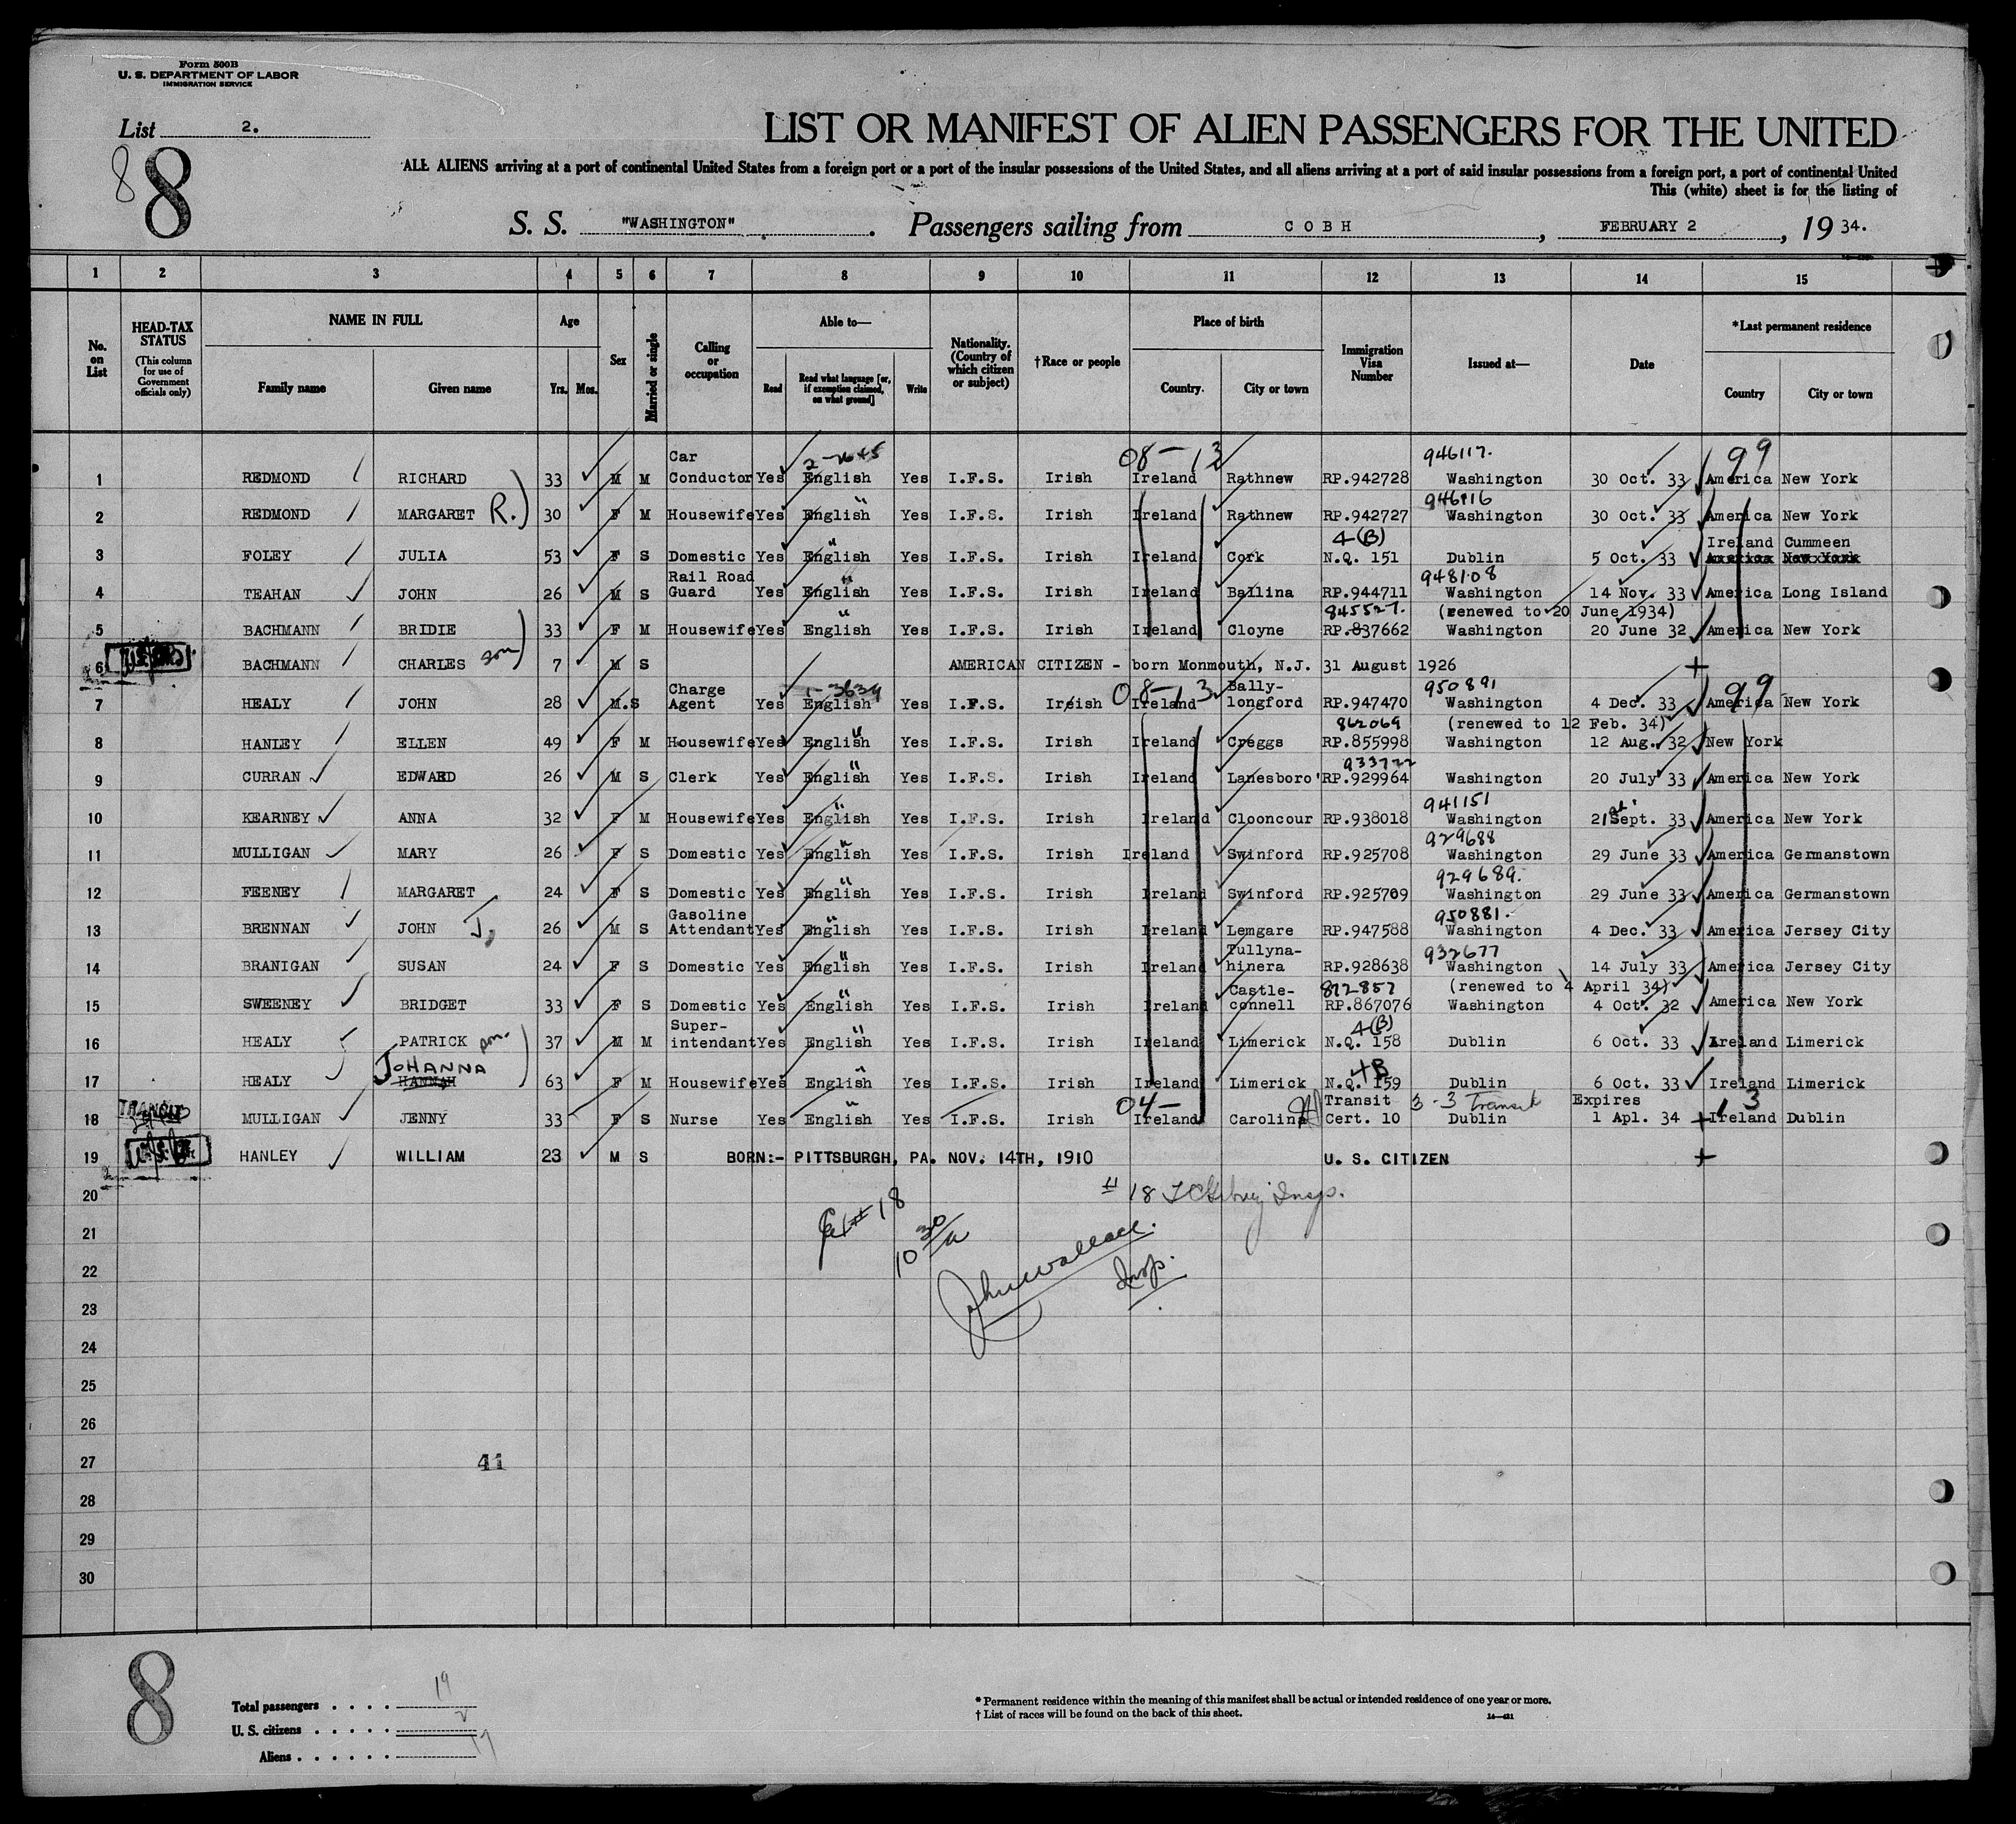 Form 500B
U. S. DEPARTMENT OF LABOR
IMMIGRATION SERVICE
List 2.
8 8
LIST OR MANIFEST OF ALIEN PASSENGERS FOR THE UNITED
ALL ALIENS arriving at a port of continental United States from a foreign port or a port of the insular possessions of the United States, and all aliens arriving at a port of said insular possessions from a foreign port, a port of continental United
This (white) sheet is for the listing of
S. S. "WASHINGTON" . Passengers sailing from COBH , FEBRUARY 2 , 19 34.
1 2 3 4 5 6 7 8 9 10 11 12 13 14 15
No. on List HEAD-TAX STATUS (This column for use of Government officials only) NAME IN FULL Family name Given name Age Yrs. Mos. Sex Married or single Calling or occupation Able to— Read Read what language [or, if exemption claimed, on what ground] Write Nationality. (Country of which citizen or subject) †Race or people Place of birth Country. City or town Immigration Visa Number Issued at— Date *Last permanent residence Country City or town
Car 2-7645 08-13 946117. 99
1 REDMOND RICHARD 33 M M Conductor Yes English Yes I.F.S. Irish Ireland Rathnew RP.942728 Washington 30 Oct. 33 America New York
946116
2 REDMOND MARGARET R. 30 F M Housewife Yes English Yes I.F.S. Irish Ireland Rathnew RP.942727 Washington 30 Oct. 33 America New York
4(B) Ireland Cummeen
3 FOLEY JULIA 53 F S Domestic Yes English Yes I.F.S. Irish Ireland Cork N.Q. 151 Dublin 5 Oct. 33 America New York
Rail Road 948108
4 TEAHAN JOHN 26 M S Guard Yes English Yes I.F.S. Irish Ireland Ballina RP.944711 Washington 14 Nov. 33 America Long Island
845527. (renewed to 20 June 1934)
5 BACHMANN BRIDIE 33 F M Housewife Yes English Yes I.F.S. Irish Ireland Cloyne RP.837662 Washington 20 June 32 America New York
6 BACHMANN CHARLES son 7 M S AMERICAN CITIZEN - born Monmouth, N.J. 31 August 1926
Charge 1-3634 08-13 Bally- 950891 99
7 HEALY JOHN 28 M.S Agent Yes English Yes I.F.S. Ireish Ireland longford RP.947470 Washington 4 Dec. 33 America New York
862069 (renewed to 12 Feb. 34)
8 HANLEY ELLEN 49 F M Housewife Yes English Yes I.F.S. Irish Ireland Creggs RP.855998 Washington 12 Aug. 32 New York
933722
9 CURRAN EDWARD 26 M S Clerk Yes English Yes I.F.S. Irish Ireland Lanesboro' RP.929964 Washington 20 July 33 America New York
941151
10 KEARNEY ANNA 32 F M Housewife Yes English Yes I.F.S. Irish Ireland Clooncour RP.938018 Washington 21 Sept. 33 America New York
929688
11 MULLIGAN MARY 26 F S Domestic Yes English Yes I.F.S. Irish Ireland Swinford RP.925708 Washington 29 June 33 America Germanstown
929689.
12 FEENEY MARGARET 24 F S Domestic Yes English Yes I.F.S. Irish Ireland Swinford RP.925709 Washington 29 June 33 America Germanstown
Gasoline 950881.
13 BRENNAN JOHN J. 26 M S Attendant Yes English Yes I.F.S. Irish Ireland Lemgare RP.947588 Washington 4 Dec. 33 America Jersey City
Tullyna- 932677
14 BRANIGAN SUSAN 24 F S Domestic Yes English Yes I.F.S. Irish Ireland hinera RP.928638 Washington 14 July 33 America Jersey City
Castle- 872857 (renewed to 4 April 34)
15 SWEENEY BRIDGET 33 F S Domestic Yes English Yes I.F.S. Irish Ireland connell RP.867076 Washington 4 Oct. 32 America New York
Super- 4(B)
16 HEALY PATRICK son. 37 M M intendant Yes English Yes I.F.S. Irish Ireland Limerick N.Q. 158 Dublin 6 Oct. 33 Ireland Limerick
JOHANNA 4B
17 HEALY HANNAH 63 F M Housewife Yes English Yes I.F.S. Irish Ireland Limerick N.Q. 159 Dublin 6 Oct. 33 Ireland Limerick
TRANSIT 04- Transit 3-3 Transit Expires 13
18 MULLIGAN JENNY 33 F S Nurse Yes English Yes I.F.S. Irish Ireland Carolina Cert. 10 Dublin 1 Apl. 34 Ireland Dublin
19 HANLEY WILLIAM 23 M S BORN:- PITTSBURGH, PA. NOV. 14TH, 1910 U. S. CITIZEN
20 # 18 Insp.
21 # 18
22 10 30/a John Wallace. Insp.
23
24
25
26
27 41
28
29
30
8
Total passengers . . . . 19
U. S. citizens . . . . . 2
Aliens . . . . . . 17
* Permanent residence within the meaning of this manifest shall be actual or intended residence of one year or more.
† List of races will be found on the back of this sheet.